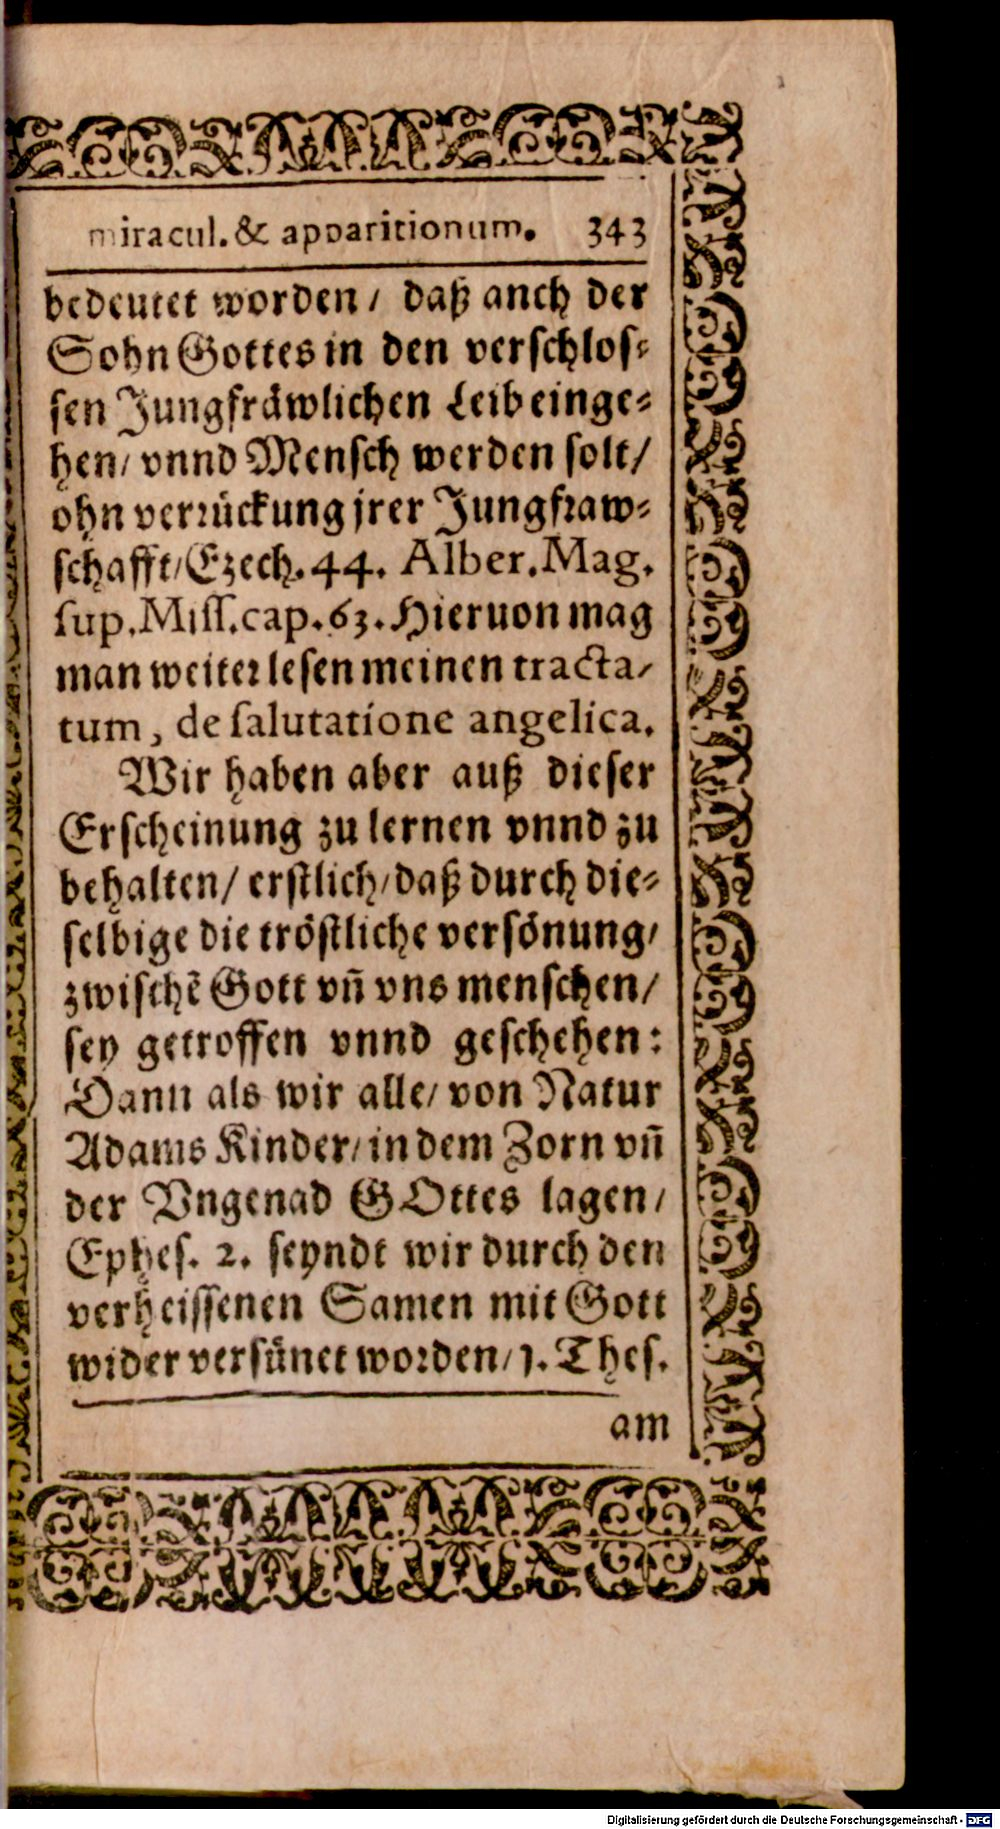 miracul. & apparitionum. 343
bedeutet worden / daß anch der
Sohn Gottes in den verschlos-
sen Jungfräwlichen Leib einge-
hen / vnnd Mensch werden solt /
ohn verrückung jrer Jungfraw-
schafft / Ezech. 44. Alber. Mag.
sup. Miss. cap. 63. Hieruon mag
man weiter lesen meinen tracta-
tum, de salutatione angelica.
Wir haben aber auß dieser
Erscheinung zu lernen vnnd zu
behalten / erstlich / daß durch die-
selbige die tröstliche versönung /
zwischē Gott vñ vns menschen /
sey getroffen vnnd geschehen:
Dann als wir alle / von Natur
Adams Kinder / in dem Zorn vñ
der Vngenad GOttes lagen /
Ephes. 2. seyndt wir durch den
verheissenen Samen mit Gott
wider versünet worden / 1. Thes.
am
Digitalisierung gefördert durch die Deutsche Forschungsgemeinschaft - DFG